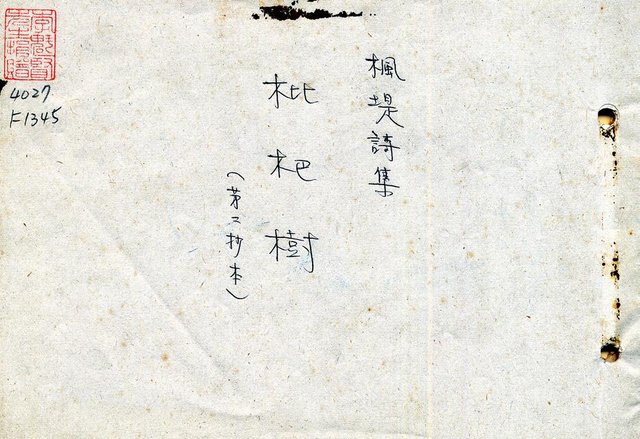 楓堤詩集
枇杷樹
(第二抄本)
4027
F1345